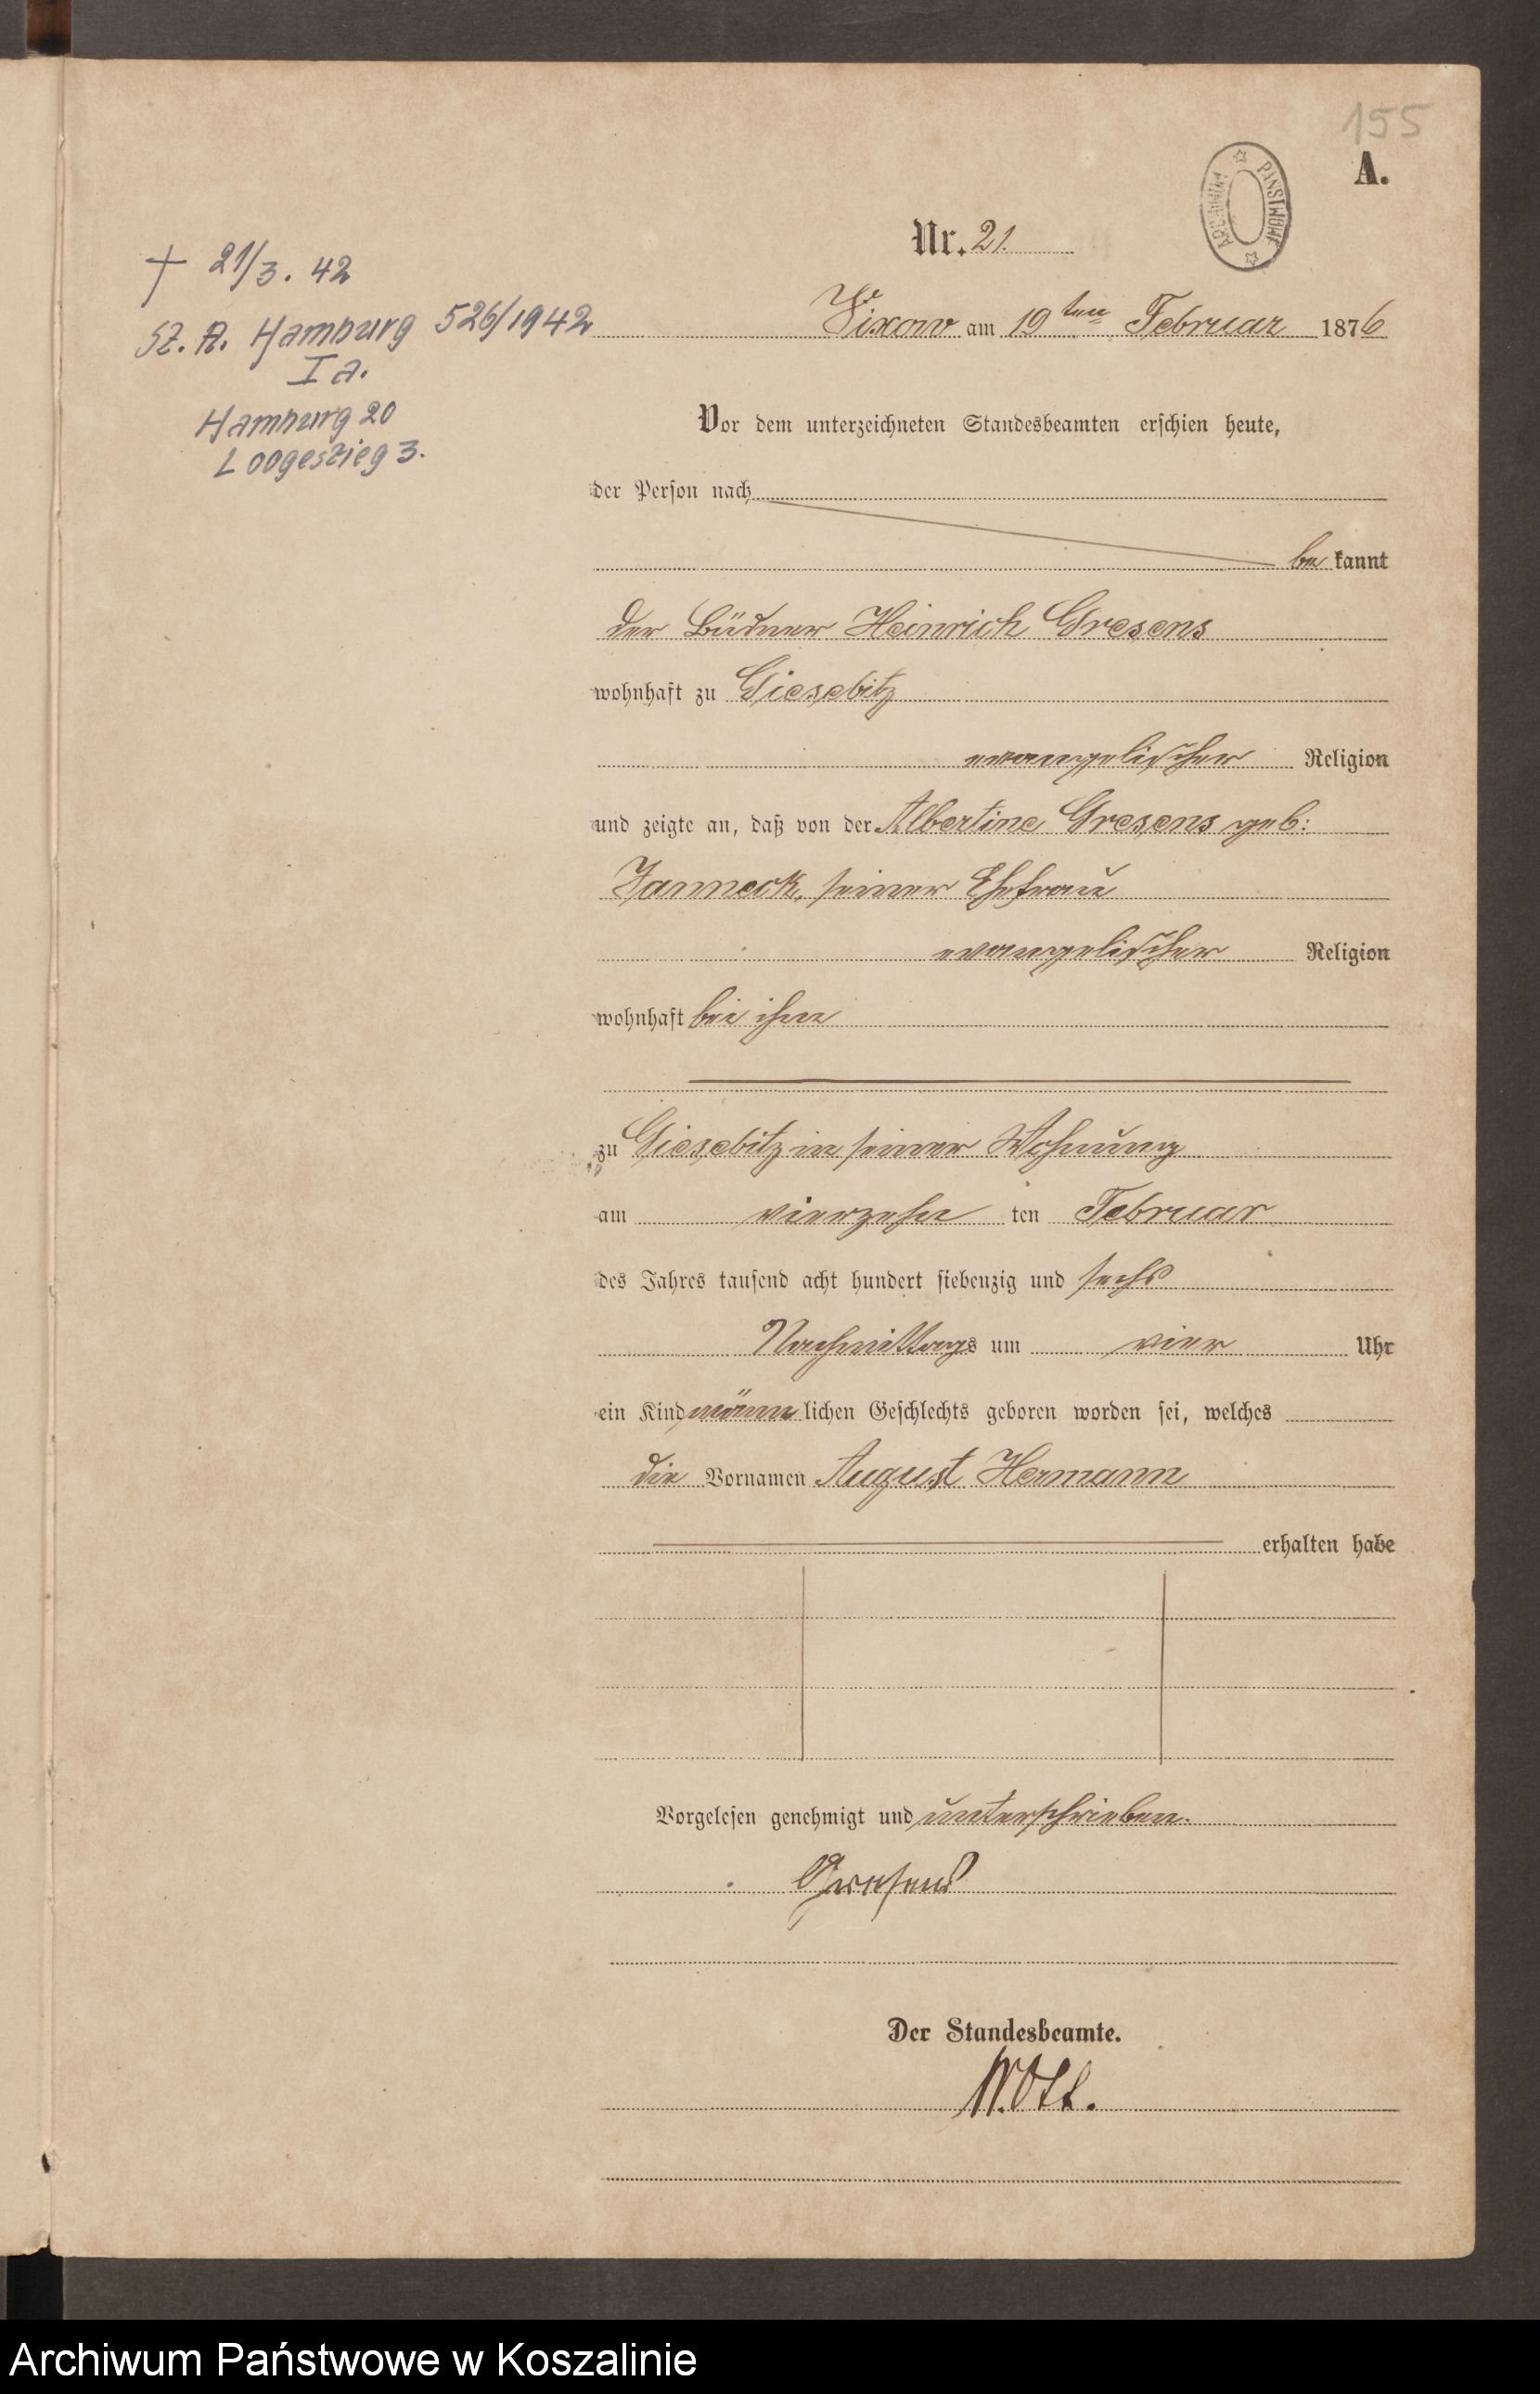 155
A.
ARCHIWUM PAŃSTWOWE
Nr. 21.
† 21/3. 42
St. A. Hamburg 526/1942
I a.
Hamburg 20
Loogestieg 3.
Vixow am 19ten Februar 1876
Vor dem unterzeichneten Standesbeamten erschien heute,
der Person nach
be kannt
der Büdner Heinrich Gresens
wohnhaft zu Giesebitz
evangelischer Religion
und zeigte an, daß von der Albertine Gresens geb:
Janneck, seiner Ehefrau
evangelischer Religion
wohnhaft bei ihm
zu Giesebitz in seiner Wohnung
am vierzehn ten Februar
des Jahres tausend acht hundert siebenzig und sechs
Nachmittags um vier Uhr
ein Kind männ lichen Geschlechts geboren worden sei, welches
die Vornamen August Hermann
erhalten habe
Vorgelesen genehmigt und unterschrieben.
Gresens
Der Standesbeamte.
Archiwum Państwowe w Koszalinie